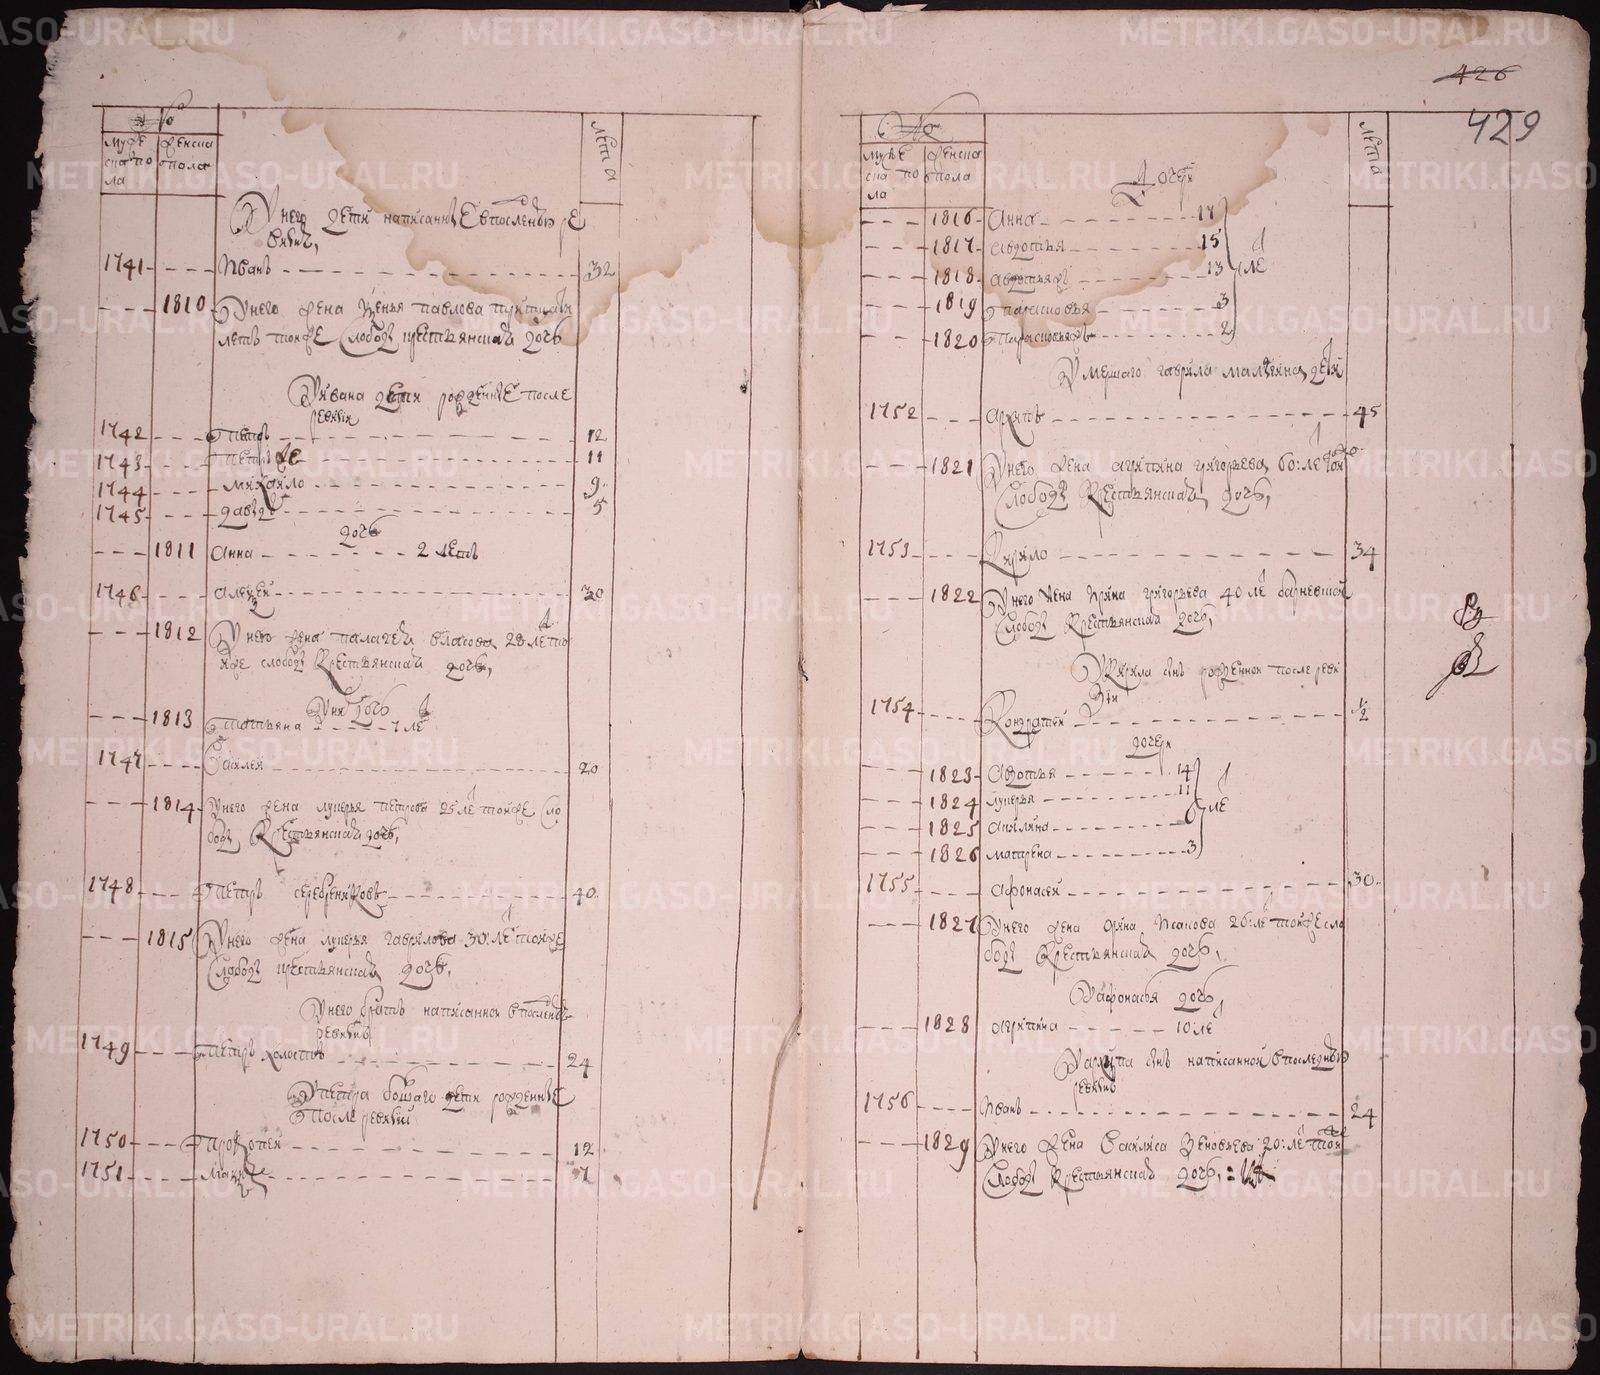 №
мужеска пола
женска пола
лета
У него дети написанные в последней ре
визии,
1741 Иванъ 32
1810 У него жена Павлова
летъ тойже Слободы крестьянская дочь
У Ивана дети рожденные после
ревизии
1742 Петръ 12
1743 Петръ же 11
1744 Михайло 9
1745 Давыдъ 5
дочь
1811 Анна 2 летъ
1746 Алексей 30
1812 У него жена Палагея Власова 28 ле той
же слободы крестьянская дочь,
У них дочь
1813 Татьяна 7 ле
1747 Василей 20
1814 У него жена Лукерья Петрова 25 ле тойже Сло
боды Крестьянская дочь,
1748 Петръ Серебрениковъ 40
1815 У него жена Лукерья Гаврилова 30 ле тойже
Слободы крестьянская дочь,
У него братъ написанной в последней
ревизии
1749 Петръ холостъ 24
У Петра большаго дети рожденные
после ревизии
1750 Прокопей 12
1751 Макс 7
426
429
№
мужеска пола
женска пола
лета
Дочери
1816 Анна 17
1817 Авдотья 15
1818 Авдотья ж 13 ле
1819 Парасковья 3
1820 Парасковья ж 2
Умершаго Гаврила дети
1752 Архипъ 45
1821 У него жена Агрипина Григорьева 60: ле той
Слободы Крестьянская дочь,
1753 Кирило 34
1822 У него жена Ирина Григорьева 40 ле Барневской
Слободы Крестьянская дочь,
У Кирила сынъ рожденной после реви
зии
1754 Кондратей 1/2
дочери
1823 Авдотья 14
1824 Лукерья 11 ле
1825 Акилина 6
1826 Матрена 3
1755 Афонасей 30
1827 У него жена Орина Исакова 26: ле тойже сло
боды Крестьянская дочь,
У Афонасья дочь,
1828 Агрипина 10 ле
У Архипа сынъ написанной в последней
ревизии
1756 Иванъ 24
1829 У него жена Василиса Зеновьева 20: ле той
Слободы Крестьянская дочь,